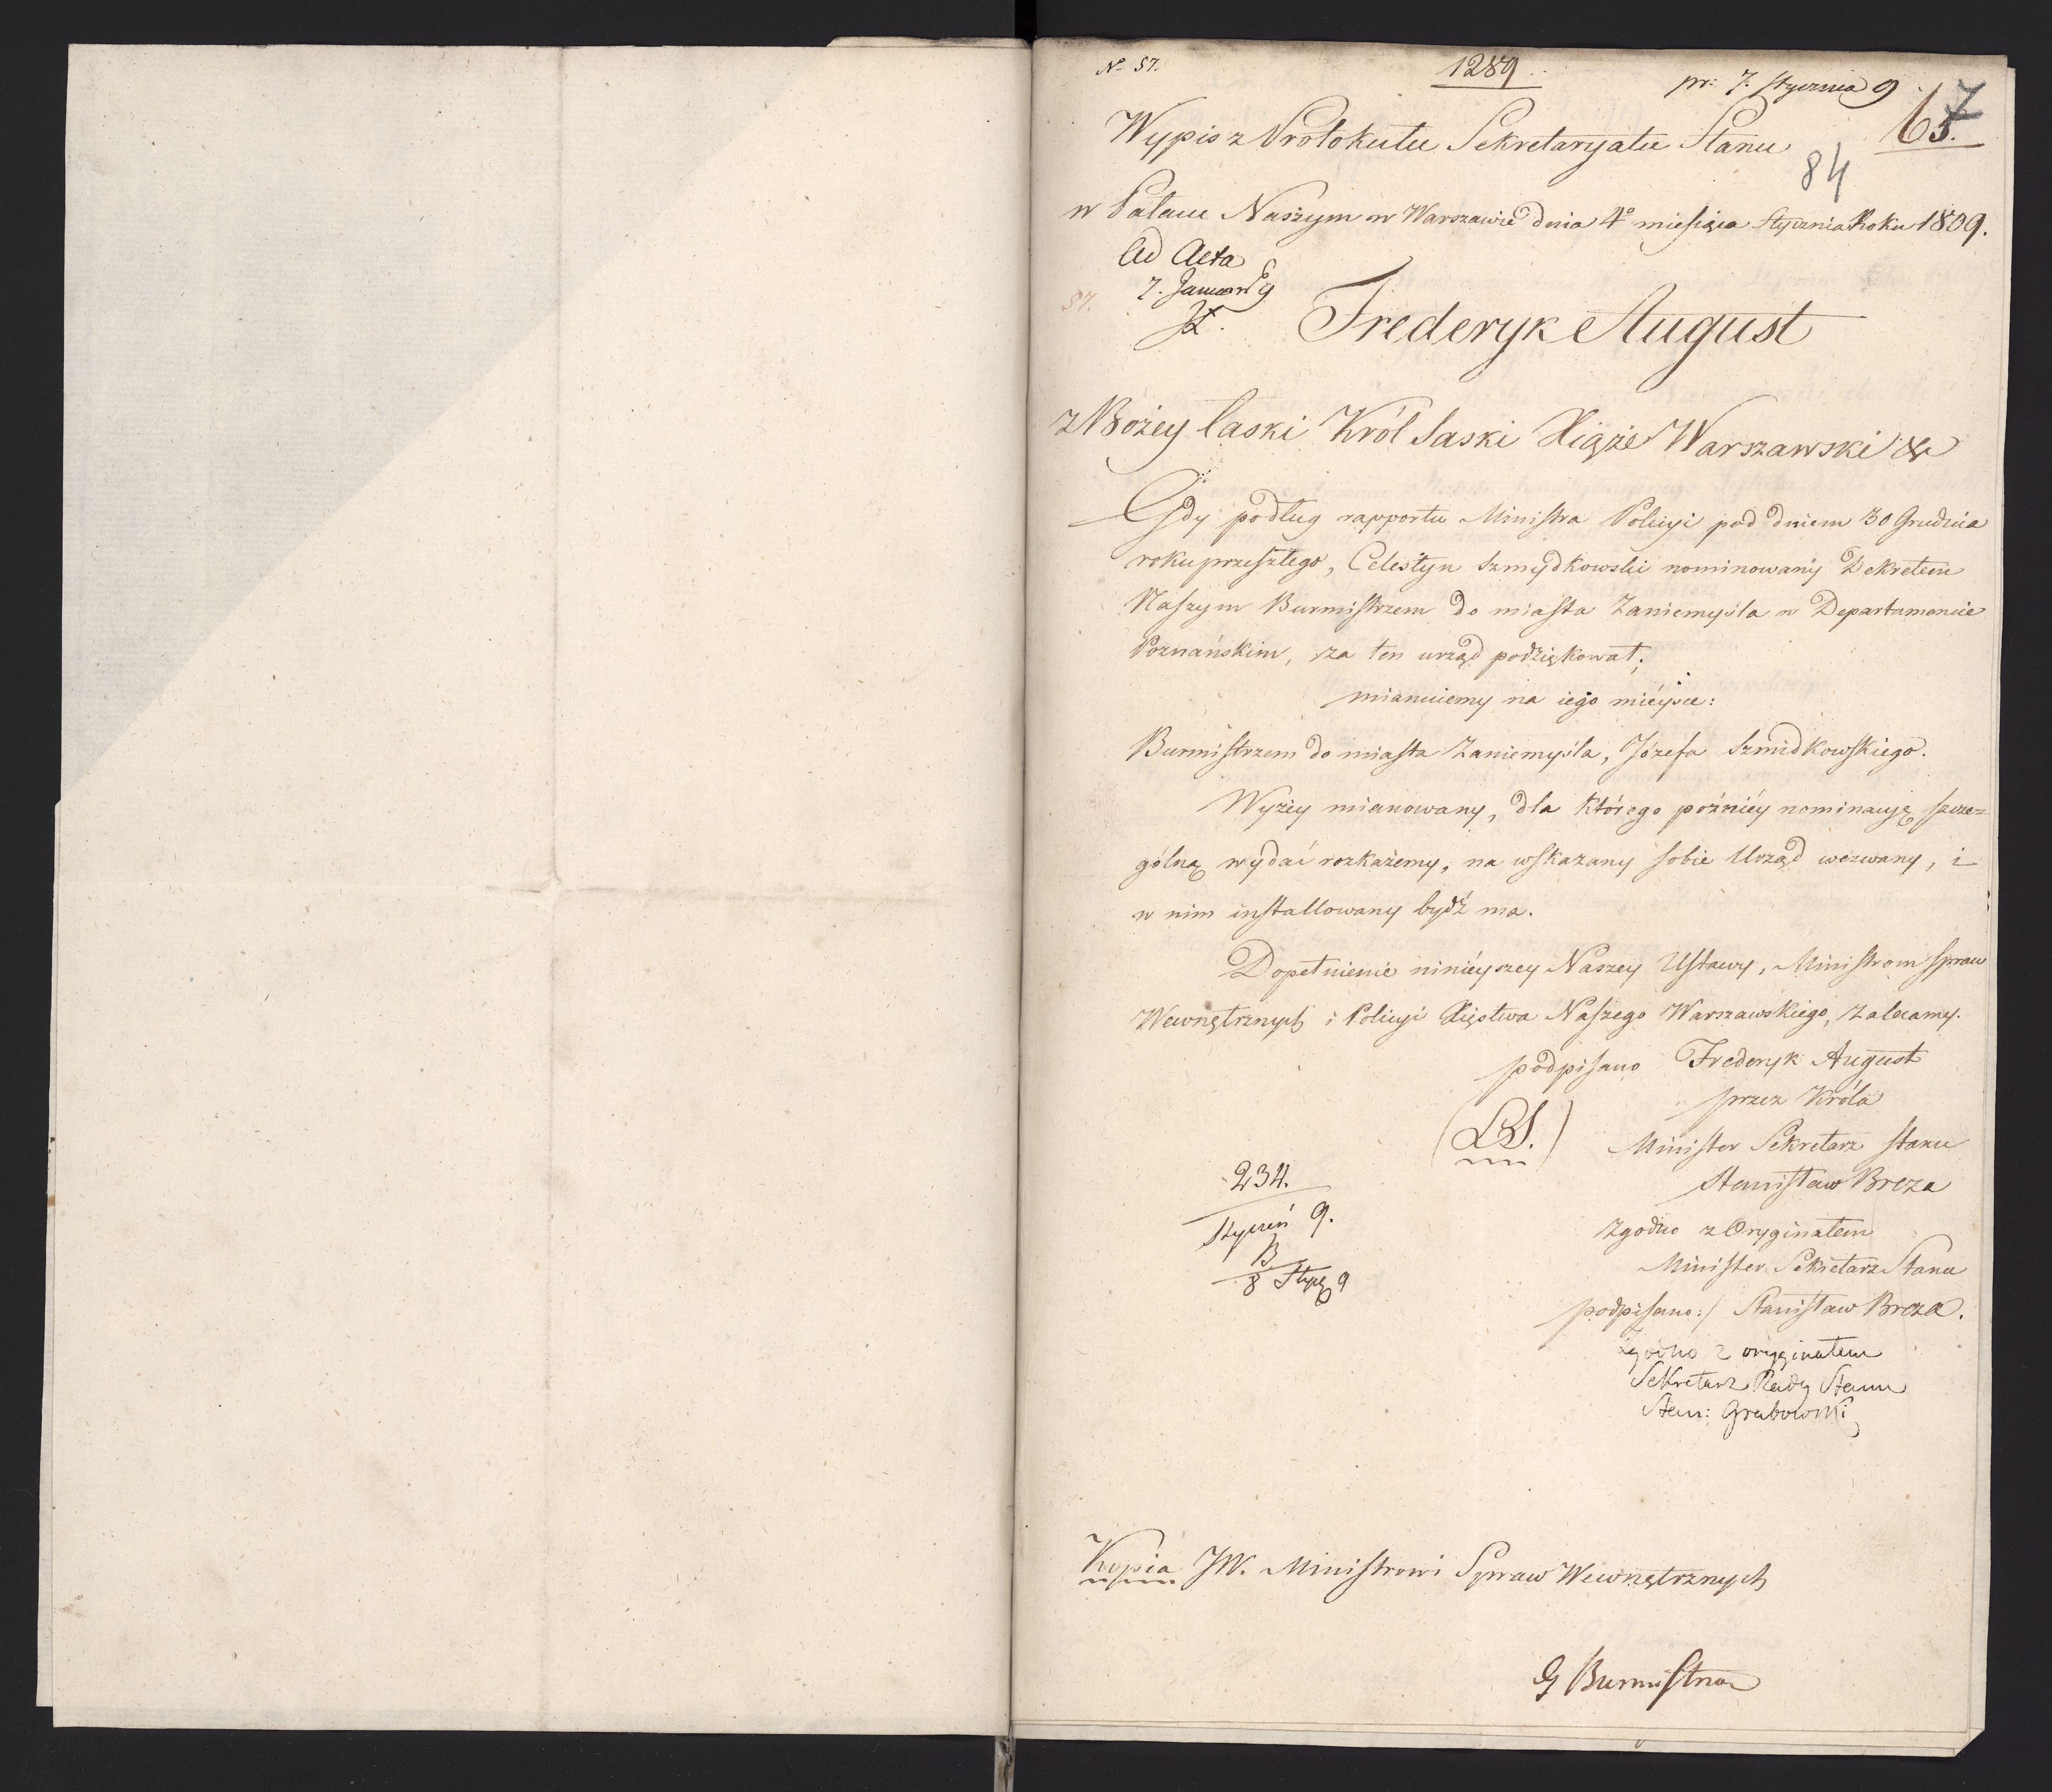 N 57.
1289
pr: 7. Stycznia 9
67
5.
Wypis z Protokułu Sekretaryatu Stanu
84
w Pałacu Naszym w Warszawie dnia 4º miesiąca Stycznia Roku 1809.
Ad Acta
7. Januar 9
57.
Frederyk August
z Bożey łaski Król Saski Xiąże Warszawski &
Gdy podług rapportu Ministra Policyi pod dniem 30 Grudnia
roku przeszłego, Celestyn Szmydkowski nominowany Dekretem
Naszym Burmistrzem do miasta Zaniemyśla w Departamencie
Poznańskim, za ten urząd podziękował;
mianuiemy na iego mieysce:
Burmistrzem do miasta Zaniemyśla, Józefa Szmidkowskiego.
Wyżey mianowany, dla którego poźniéy nominacyę szcze=
gólną wydać rozkażemy, na wskazany sobie Urząd wezwany, i
w nim installowany bydź ma.
Dopełnienie niniéyszey Naszey Ustawy, Ministrom Spraw
Wewnętrznych i Policyi Xięstwa Naszego Warszawskiego, zalecamy.
podpisano Frederyk August
przez Króla
(LS.)
Minister Sekretarz Stanu
Stanisław Breza
234.
Styczeń 9.
B
8 Stycz 9
Zgodno z Oryginałem
Minister Sekretarz Stanu
podpisano:/ Stanisław Breza.
Zgodno z oryginałem
Sekretarz Rady Stanu
Stan: Grabowski
Kopia JW. Ministrowi Spraw Wewnętrznych
G Burmistrza